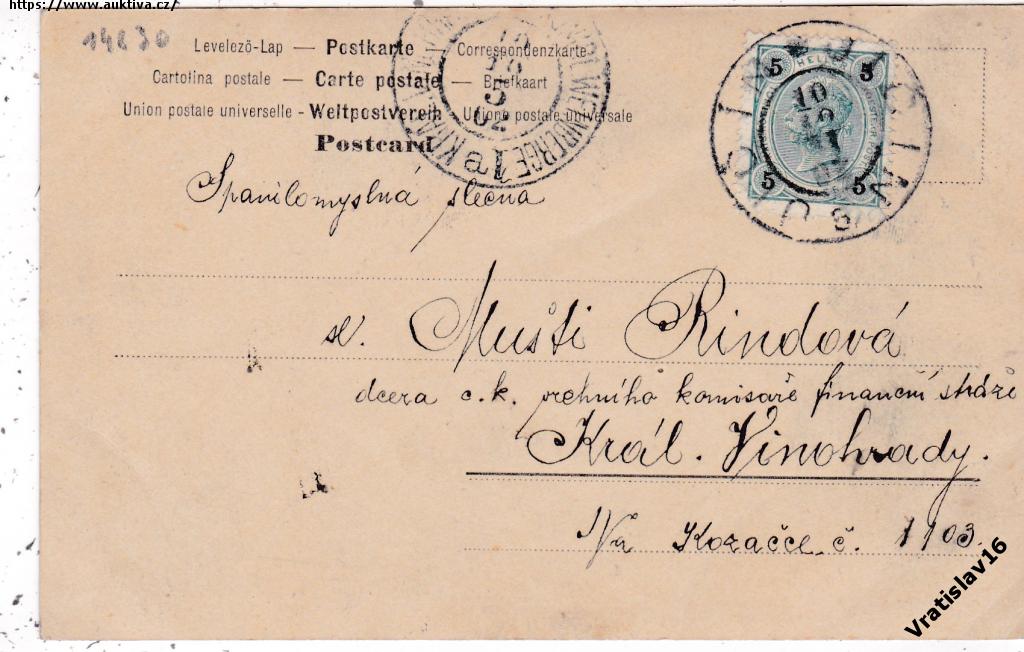 https://www.auktiva.cz/
14630
Levelező-Lap — Postkarte — Correspondenzkarte
Cartolina postale — Carte postale — Briefkaart
Union postale universelle - Weltpostverein Unione postale universale
Postcard
5 5
5 5
10
JIČIN
JIČIN
Spanilomyslná slečna
sl. Mušti Rindová
dcera c.k. vrchního komisaře finanční stráže
Král. Vinohrady.
Na Kozačce č. 1103.
Vratislav16